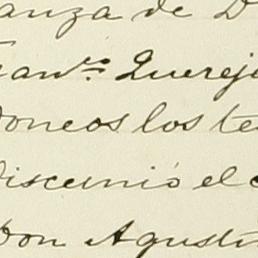 anza de D
Franco Quereji
doneos los te
discernió el c
Don Agustí